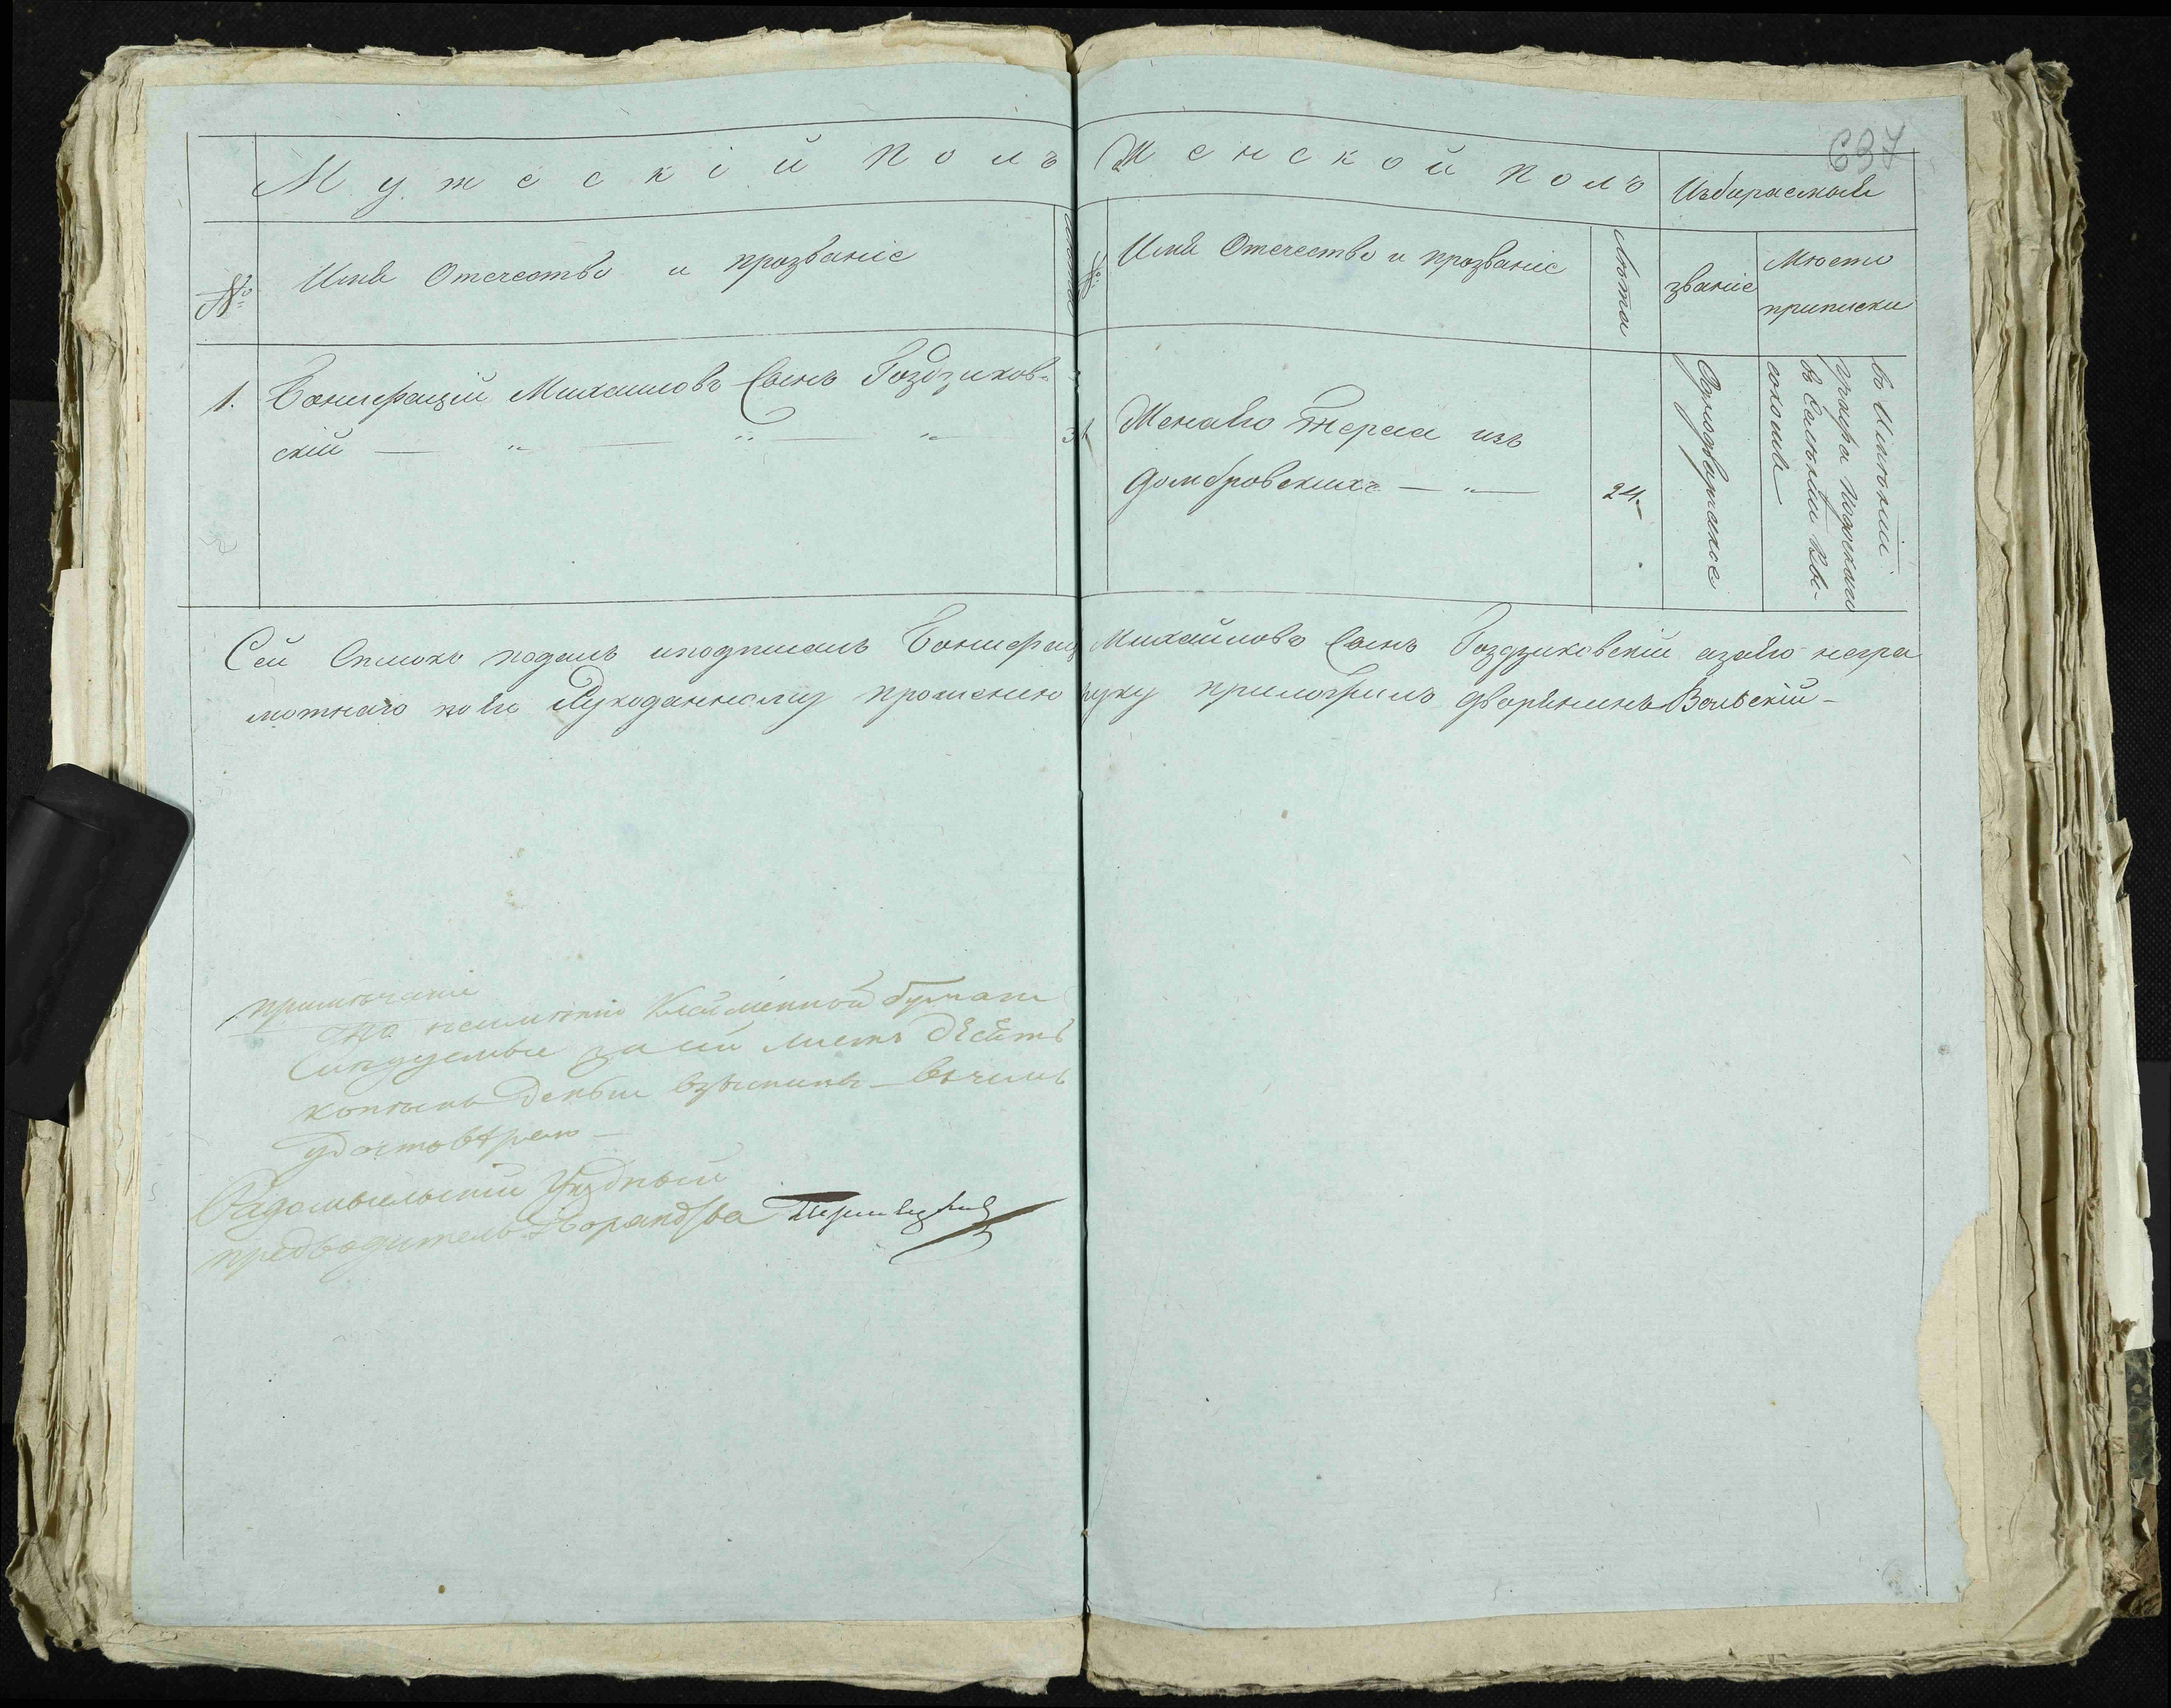 637
Мужескій полъ
Женской полъ
Избираемыя
№
Имя Отечество и прозваніе
Лѣта
№
Имя Отечество и прозваніе
Лѣта
званіе
Мѣсто
приписки
1. Бонифацій Михаиловъ Сынъ Гоздзиков-
скій
31
Жена Его Тереса изъ
Домбровскихъ
24
Однодворческое
въ Имѣніи
Графа
въ Сельцѣ
Сей Списокъ подалъ иподписалъ Бонифац Михайловъ Сынъ Гоздзиковскій азаЕго негра
мотнаго по Его Рукоданному прошенію руку приложилъ дворянинъ Вольскій
примѣчаніе
По неимѣнію Клейменной бумаги
Слѣдуемые за сей листъ дѣсять
копѣекъ денги взысканы въ чемъ
удостовѣряю
Радомысльскій Уѣздный
предводитель Дворянства